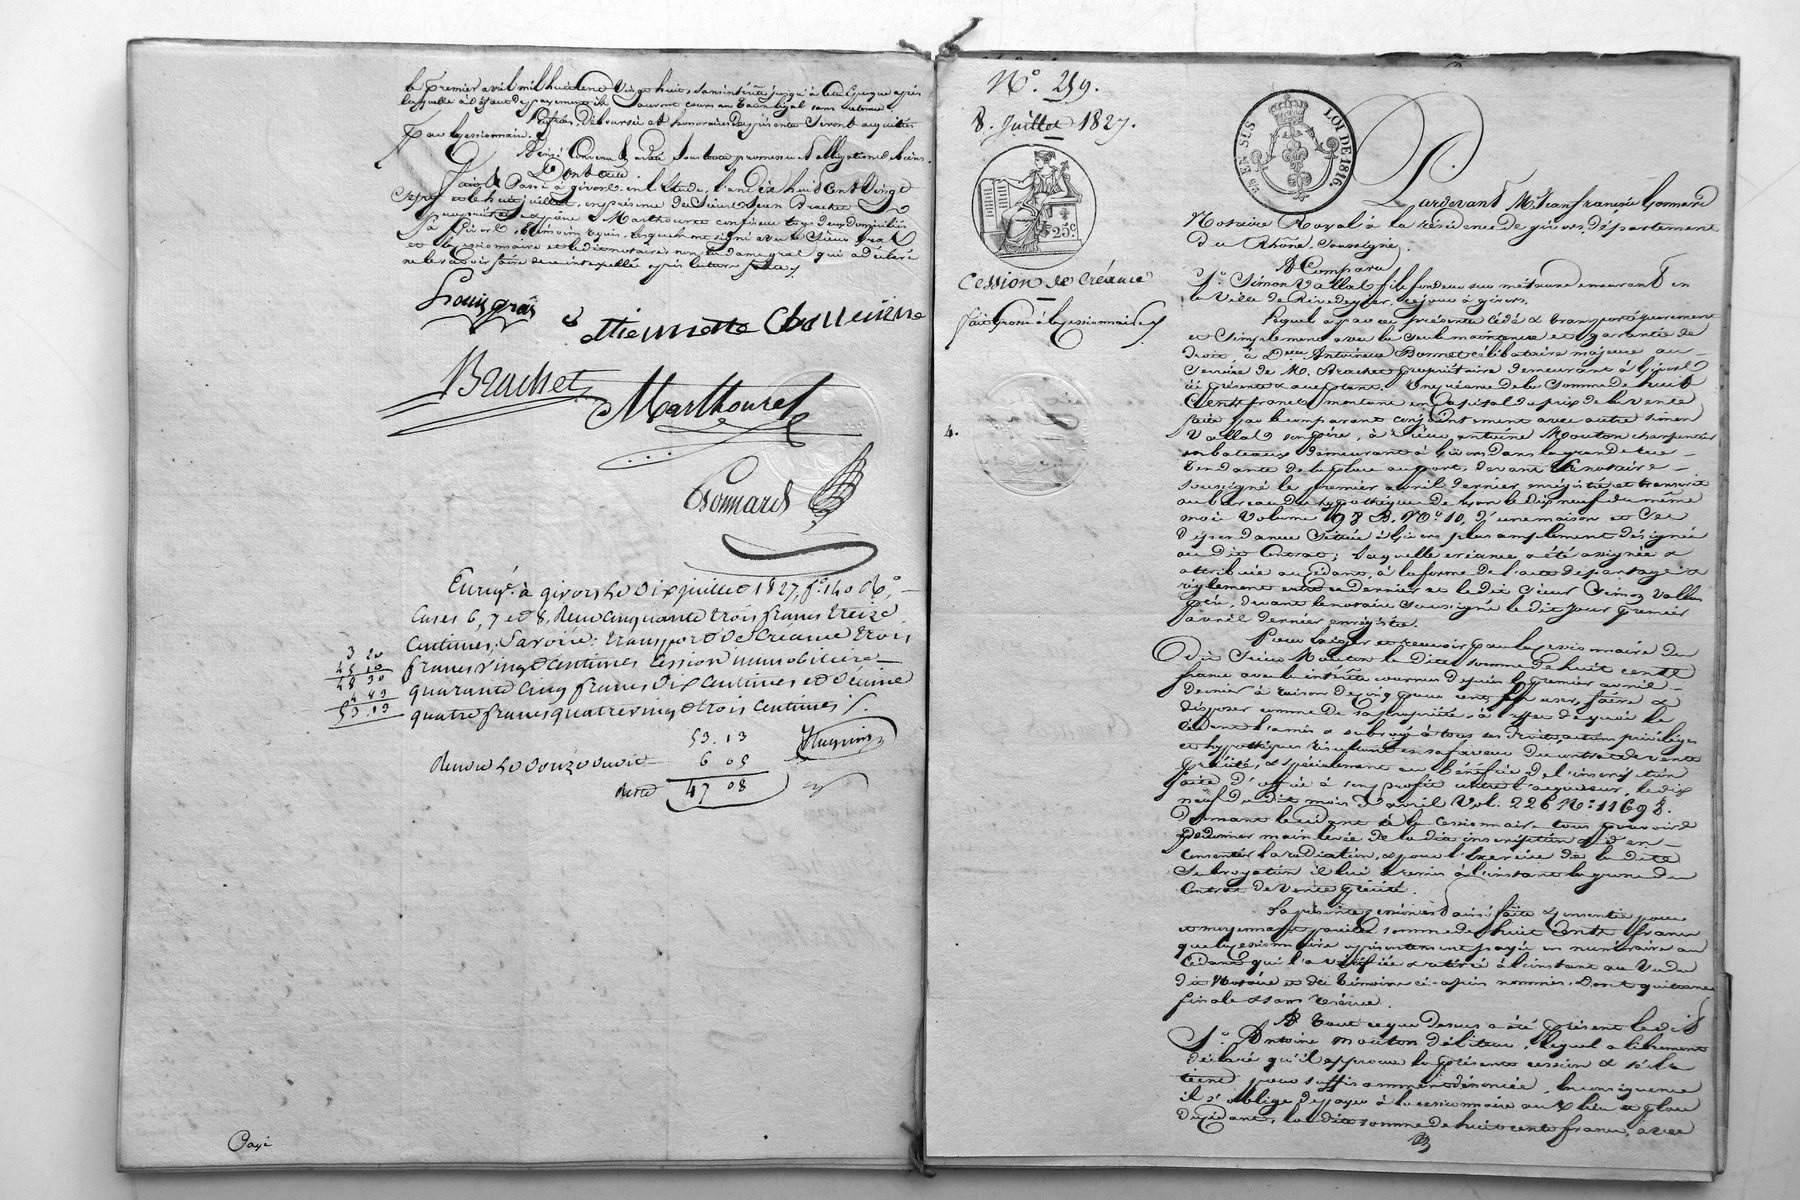 le Premier avril mil huitcent Vingt huit, sans intérêts jusqu'à cette époque après
laquelle à défaut de payement ils auront cours au taux légal sans retenue
Les frais, déboursés et honoraires des présentes seront acquittés
par la cessionnaire.
Ainsi Convenu & arrêté sous toute promesse et obligation de biens.
Dont acte
Fait & Passé à givors en l'étude, l'an dix huit Cent Vingt
Sept et le huit juillet, en présence de Sieurs Jean Brachet
propriétaire et Marthouret confiseur tous deux domiciliés
à Givors, témoins requis, lesquels ont signé avec le Sieur gras
et la cessionnaire et le dit notaire, non la dame gras qui a déclaré
ne le savoir faire de ce interpellée après lecture faite
Louis gras
ettiennette
Brachet
Marthouret
Bonnard
Enreg. à givors le Dix juillet 1827, f.° 140 R.°,
Cases 6, 7 et 8, Reçu cinquante trois francs treize
Centimes, Savoir: transport de Créance trois
francs vingt Centimes Cession immobilière
quarante cinq francs dix Centimes et décime
quatre francs quatre vingt trois Centimes
3 20
45 10
48 30
4 83
53.13
53.13
6 05
reste 47 08
Hugonin
Payé
N.° 259.
8. Juillet 1827.
25c
Cession de Créance
fait Grosse à la cessionnaire
4.
EN SUS
LOI DE 1816
Pardevant M.e Jean françois Bonnard
Notaire Royal à la résidence de givors, département
du Rhône, soussigné.
A Comparu
S.r Simon Vallas fils fondeur sur métaux demeurant en
la Ville de Rivedegier, de jour à givors,
Lequel a par ces présentes cédé & transporté purement
et Simplement avec la seule maintenue et garantie de
droit, à D.lle Antoinette Bonnet célibataire majeure au
Service de M. Brachet propriétaire demeurant à Givors
ici présente & acceptant, Une créance de la Somme de huit
Cents francs montant en Capital du prix de la vente
faite par le comparant conjointement avec autre Simon
Vallas son père, à Sieur antoine Mouton charpentier
en bateaux demeurant à Givors dans la grande rue
tendante de la place au port, devant le notaire
soussigné le premier avril dernier enregistré et transcrit
au bureau des hypothèques de Lyon le dix neuf du même
mois Volume 198 B. N.° 10, d'une maison et Ses
dépendances Située à Givors plus amplement désignée
au dit Contrat; laquelle créance a été assignée &
attribuée au cédant, à la forme de l'acte de partage &
règlement entre ce dernier et le dit Sieur Simon Vallas
père, devant le notaire Soussigné le dit jour premier
avril dernier enregistré.
Pour exiger et recevoir par la cessionnaire du
dit Sieur Mouton la dite somme de huit cents
francs avec les intérêts courus depuis le premier avril
dernier à raison de cinq pour cent, en user, faire &
disposer comme de sa propriété, à l'effet de quoi le
cédant l'a mis & subrogé à tous ses droits, actions privilèges
et hypothèques résultant en sa faveur du contrat de vente
précité, & spécialement au bénéfice de l'inscription
faite d'office à son profit contre l'acquéreur, le dix
neuf du dit mois d'avril Vol. 226 N.° 11698.
donnant le cédant à la Cessionnaire tous pouvoirs
de donner main levée de la dite inscription & d'en
Consentir la radiation, & pour l'exercice de la dite
Subrogation il lui a remis à l'instant la grosse du
Contrat de vente précité.
La présente cession est ainsi faite & consentie pour
et moyennant pareille somme de huit Cents francs
que la cessionnaire a présentement payée en numéraire au
Cédant qui l'a vérifiée & retirée à l'instant au Vu du
dit Notaire et des témoins ci-après nommés, Dont quittance
finale & sans réserve.
A tout ce que dessus a été présent le dit
S.r Antoine Mouton débiteur, lequel a librement
déclaré qu'il approuve la présente cession & se la
tient pour suffisamment dénoncée, En conséquence
il s'oblige de payer à la cessionnaire au lieu & place
du Cédant, la dite somme de huit cents francs, avec